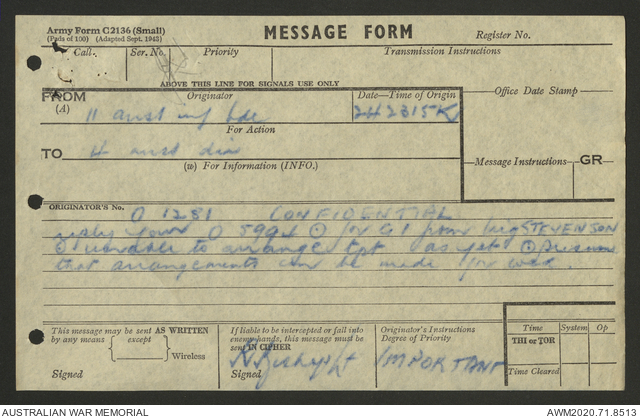 Army Form C2136 (Small)
(Pads of 100) (Adapted Sept. 1943)
MESSAGE FORM
Register No.
Call Ser. No. Priority Transmission Instructions
ABOVE THIS LINE FOR SIGNALS USE ONLY
FROM Originator Date—Time of Origin Office Date Stamp
(A) 11 aust inf bde 242315K
For Action
TO 4 aust div
(w) For Information (INFO.)
Message Instructions GR
ORIGINATOR'S No.
O 1281 CONFIDENTIAL
your O 5994 for G1 from STEVENSON
unable to arrange tpt as yet
that arrangements can be made for wed.
This message may be sent AS WRITTEN
by any means except Wireless
Signed
If liable to be intercepted or fall into
enemy hands, this message must be
sent IN CIPHER
Signed
Originator's Instructions
Degree of Priority
IMPORTANT
Time System Op
THI or TOR
Time Cleared
AUSTRALIAN WAR MEMORIAL
AWM2020.71.8513